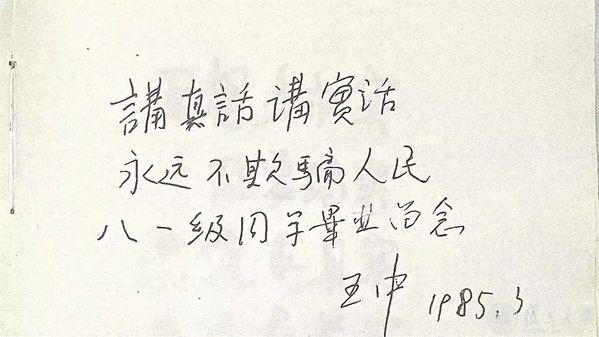 講真話講實话
永远不欺骗人民
八一级同学畢业留念
王中 1985.3